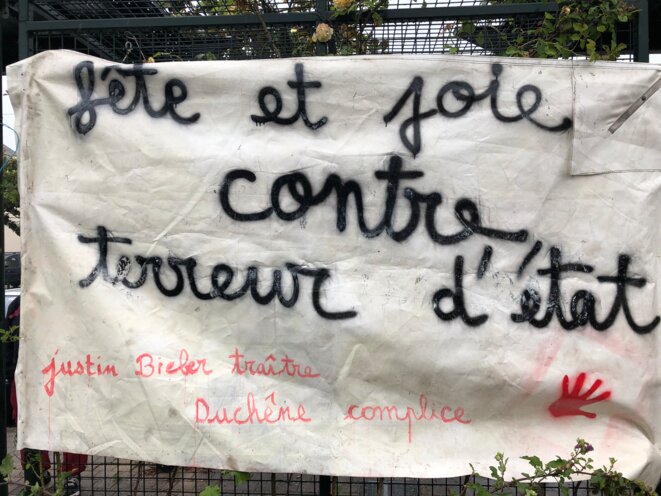 fête et joie
contre
terreur d'état
justin Bieber traître
Duchêne complice